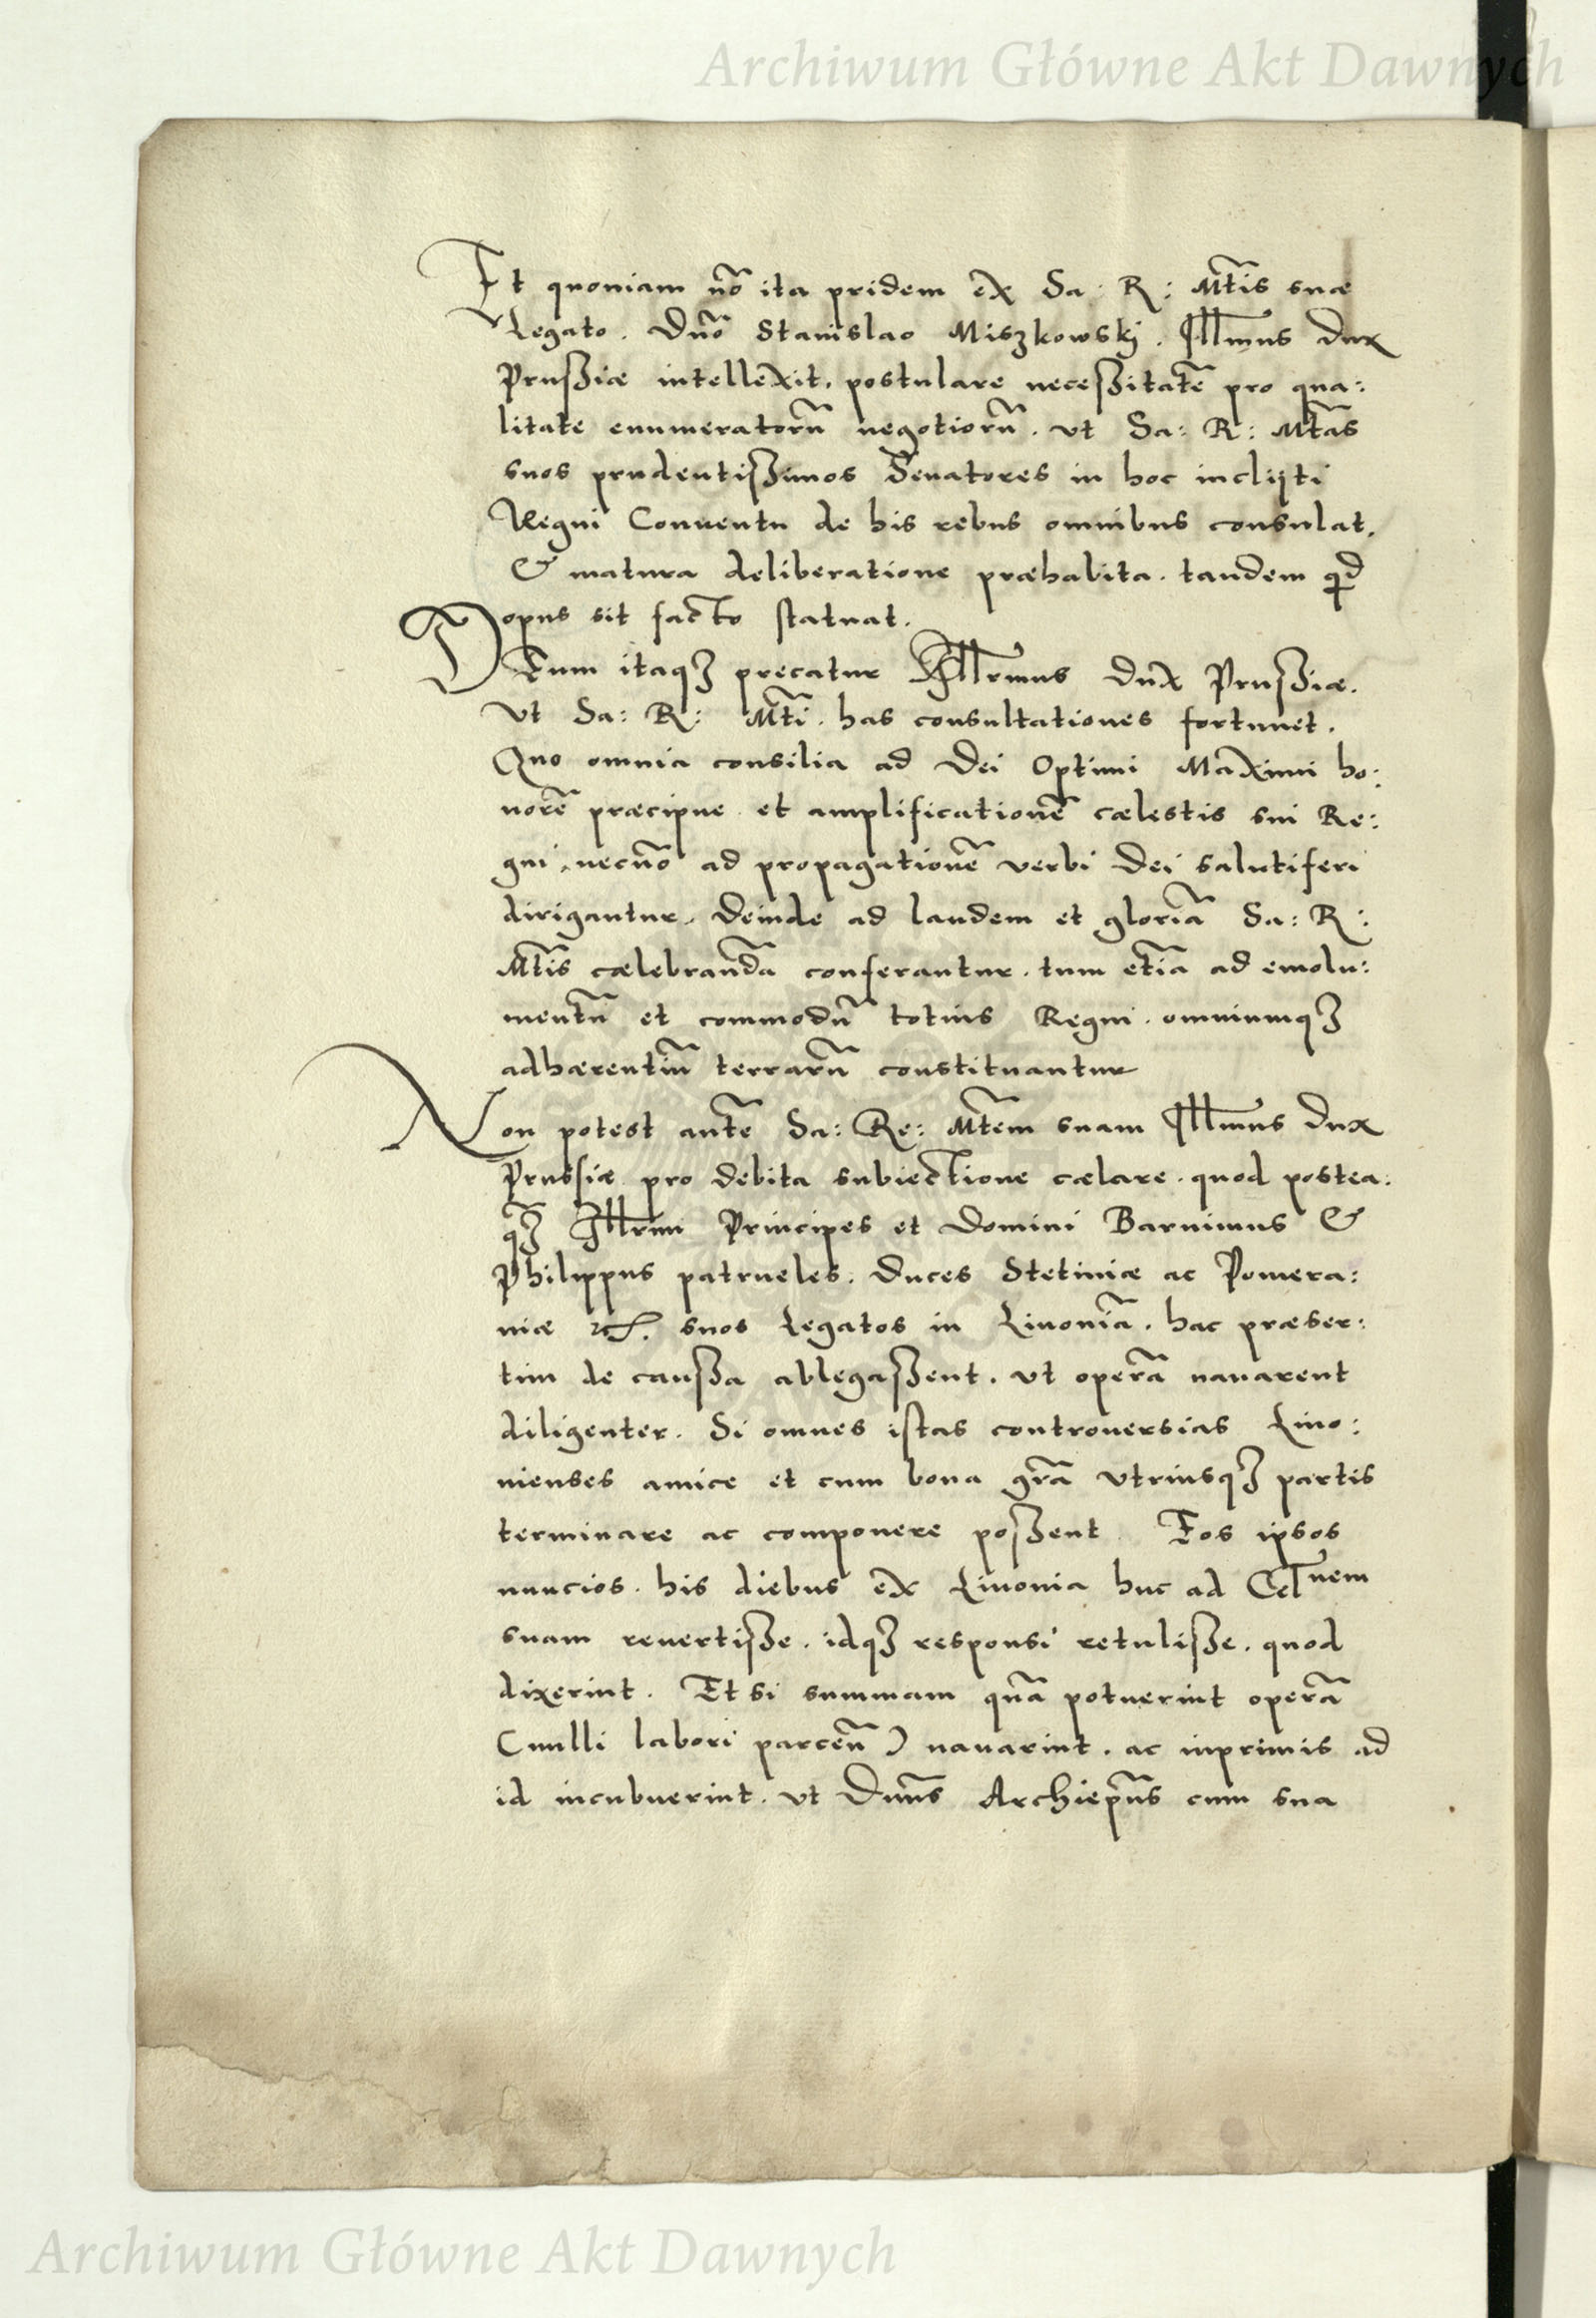 Archiwum Główne Akt Dawnych
Et quoniam nō ita pridem ex Sa: R: Mtis suæ
Legato. Dño Stanislao Miszkowskj. Illmus Dux
Prussiæ intellexit, postulare necessitatē pro qua:
litate enumeratorū negotiorū. vt Sa: R: Mtas
suos prudentissimos Senatores in hoc inclijti
Regni Conuentu de his rebus omnibus consulat,
& matura deliberatione præhabita. tandem qd
opus sit facto statuat.
Deum itaq3 precatur Illrmus Dux Prussiæ.
Vt Sa: R: Mti. has consultationes fortunet.
Quo omnia consilia ad Dei Optimi Maximi ho:
norē præcipue et amplificationē cælestis sui Re:
gni, necnō ad propagationē verbi Dei salutiferi
dirigantur. Deinde ad laudem et gloriā Sa: R:
Mtis cælebrandā conferantur. tum etiā ad emolu:
mentū et commodū totius Regni. omniumq3
adhærentiū terrarū constituantur
Non potest ante Sa: Re: Mtem suam Illmus Dux
Prussiæ pro debita subiectione cælare. quod postea:
q̃3 Illrmi Principes et Domini Barnimus &
Philippus patrueles. Duces Stetiniæ ac Pomera:
niæ etc. suos Legatos in Liuoniā. hac præser:
tim de caussa ablegassent. vt operā nauarent
diligenter. Si omnes istas controuersias Liuo:
nienses amice et cum bona grā vtriusq3 partis
terminare ac componere possent. Eos ipsos
nuncios. his diebus ex Liuonia huc ad Celnem
suam reuertisse. idq3 responsi retulisse. quod
dixerint. Et si summam quā potuerint operā
(nulli labori parceñ) nauarint. ac inprimis ad
id incubuerint. vt Dnūs Archiepūs cum sua
Archiwum Główne Akt Dawnych